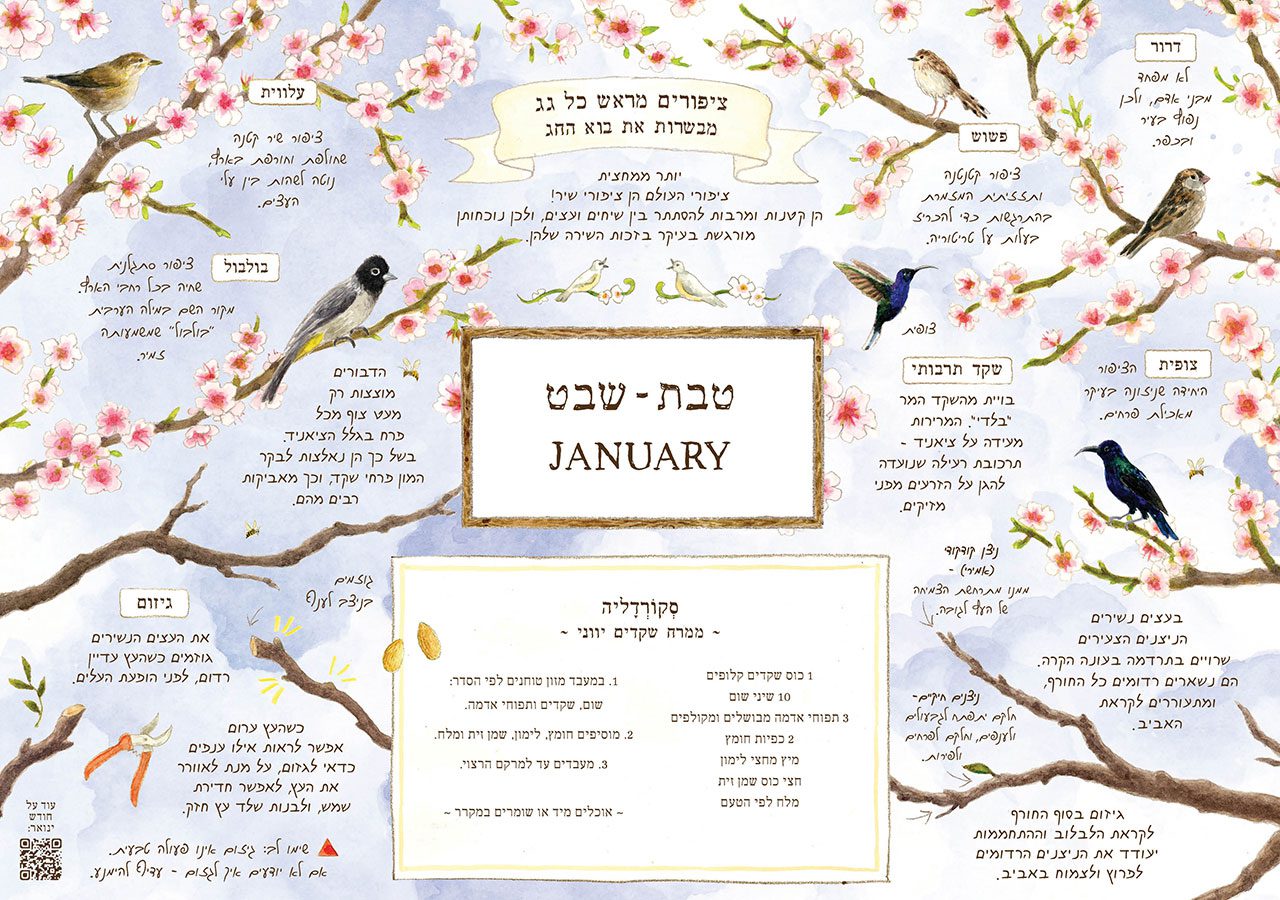 ציפורים מראש כל גג
מבשרות את בוא החג
יותר ממחצית
ציפורי העולם הן ציפורי שיר!
הן קטנות ומרבות להסתתר בין שיחים ועצים, ולכן נוכחותן
מורגשת בעיקר בזכות השירה שלהן.
דרור
לא מפחד
מבני אדם, ולכן
נפוץ בעיר
ובכפר.
פשוש
ציפור קטנטנה
ותזזיתית המזמרת
בהתרגשות כדי להכריז
בעלות על טריטוריה.
עלווית
ציפור שיר קטנה
שחולפת וחורפת בארץ,
נוטה לשהות בין עלי
העצים.
בולבול
ציפור סתגלנית
שחיה בכל רחבי הארץ.
מקור השם במילה הערבית
"בולבול" שמשמעותה
זמיר.
צופית
צופית
הציפור
היחידה שניזונה בעיקר
מאכילת פרחים.
שקד תרבותי
בויית מהשקד המר
"בלדי". המרירות
מעידה על ציאניד -
תרכובת רעילה שנועדה
להגן על הזרעים מפני
מזיקים.
הדבורים
מוצצות רק
מעט צוף מכל
פרח בגלל הציאניד.
בשל כך הן נאלצות לבקר
המון פרחי שקד, וכך מאביקות
רבים מהם.
טבת - שבט
JANUARY
ניצן קודקוד
(אמירי) -
ממנו מתרחשת הצמיחה
של העץ לגובה.
בעצים נשירים
הניצנים הצעירים
שרויים בתרדמה בעונה הקרה.
הם נשארים רדומים כל החורף,
ומתעוררים לקראת
האביב.
ניצנים חיקיים-
חלקם יתפתח לגבעולים
ולענפים, וחלקם לפרחים
ולפירות.
גיזום בסוף החורף
לקראת הלבלוב וההתחממות
יעודד את הניצנים הרדומים
לפרוץ ולצמוח באביב.
סְקוֹרְדָלִיה
~ ממרח שקדים יווני ~
1 כוס שקדים קלופים
10 שיני שום
3 תפוחי אדמה מבושלים ומקולפים
2 כפיות חומץ
מיץ מחצי לימון
חצי כוס שמן זית
מלח לפי הטעם
1. במעבד מזון טוחנים לפי הסדר:
שום, שקדים ותפוחי אדמה.
2. מוסיפים חומץ, לימון, שמן זית ומלח.
3. מעבדים עד למרקם הרצוי.
~ אוכלים מיד או שומרים במקרר ~
גוזמים
בניצב לענף
גיזום
את העצים הנשירים
גוזמים כשהעץ עדיין
רדום, לפני הופעת העלים.
כשהעץ ערום
אפשר לראות אילו ענפים
כדאי לגזום, על מנת לאוורר
את העץ, לאפשר חדירת
שמש, ולבנות שלד עץ חזק.
שימו לב: גיזום אינו פעולה טבעית.
אם לא יודעים איך לגזום - עדיף להימנע.
עוד על
חודש
ינואר: